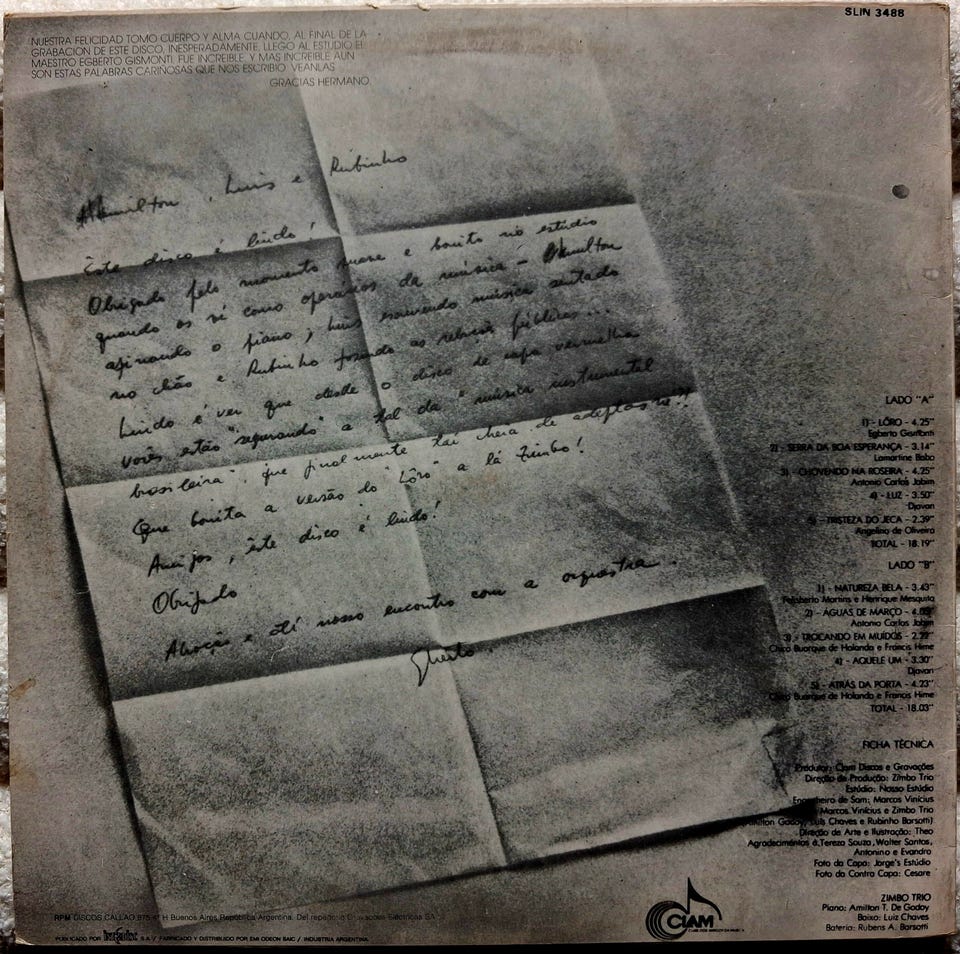 SLIN 3488
NUESTRA FELICIDAD TOMO CUERPO Y ALMA CUANDO, AL FINAL DE LA
GRABACION DE ESTE DISCO, INESPERADAMENTE, LLEGO AL ESTUDIO EL
MAESTRO EGBERTO GISMONTI. FUE INCREIBLE. Y MAS INCREIBLE AUN
SON ESTAS PALABRAS CARIÑOSAS QUE NOS ESCRIBIO. VEANLAS
GRACIAS HERMANO
Hamilton, Luis e Rubinho
Êste disco é lindo!
Obrigado pelo momento suave e bonito no estúdio
quando os vi como operários da música – Hamilton
afinando o piano, Luis escrevendo música sentado
no chão e Rubinho fazendo as relações públicas...
Lindo é ver que desde o disco de capa vermelha
vocês estão "segurando" a tal da "música instrumental
brasileira" que finalmente tai cheia de adeptos
Que bonita a versão do "Lôro" a lá Zimbo!
Amigos, êste disco é lindo!
Obrigado
Abração e até nosso encontro com a orquestra.
Egberto
LADO "A"
1) - LÔRO - 4.25"
Egberto Gismonti
2) - SERRA DA BOA ESPERANÇA - 3.14"
Lamartine Babo
3) - CHOVENDO NA ROSEIRA - 4.25"
Antonio Carlos Jobim
4) - LUZ - 3.50"
Djavan
5) - TRISTEZA DO JECA - 2.39"
Angelino de Oliveira
TOTAL - 18.19"
LADO "B"
1) - NATUREZA BELA - 3.43"
Felisberto Martins e Henrique Mesquita
2) - ÁGUAS DE MARÇO - 4.05"
Antonio Carlos Jobim
3) - TROCANDO EM MUÍDOS - 2.22"
Chico Buarque de Holanda e Francis Hime
4) - AQUELE UM - 3.30"
Djavan
5) - ATRÁS DA PORTA - 4.23"
Chico Buarque de Holanda e Francis Hime
TOTAL - 18.03"
FICHA TÉCNICA
Produtor: Clam Discos e Gravações
Direção de Produção: Zimbo Trio
Estúdio: Nosso Estúdio
Engenheiro de Som: Marcos Vinícius
Marcos Vinícius e Zimbo Trio
(Amilton Godoy, Luís Chaves e Rubinho Barsotti)
Direção de Arte e Ilustração: Theo
Agradecimentos à Tereza Souza, Walter Santos,
Antonino e Evandro
Foto da Capa: Jorge's Estúdio
Foto da Contra Capa: Cesare
ZIMBO TRIO
Piano: Amilton T. De Godoy
Baixo: Luiz Chaves
Bateria: Rubens A. Barsotti
CLAM
RPM DISCOS CALLAO H Buenos Aires República Argentina. Del repertorio Eléctricas SA
PUBLICADO POR S.A.V FABRICADO Y DISTRIBUIDO POR EMI ODEON SAIC / INDUSTRIA ARGENTINA